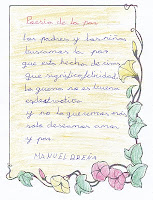 Poesía de la paz
los padres y los niños
buscamos la paz
que está hecha de rimas
que significa felicidad
la guerra no es buena
es destructiva
y no la queremos más
solo deseamos amor
y paz.
MANUEL UREÑA